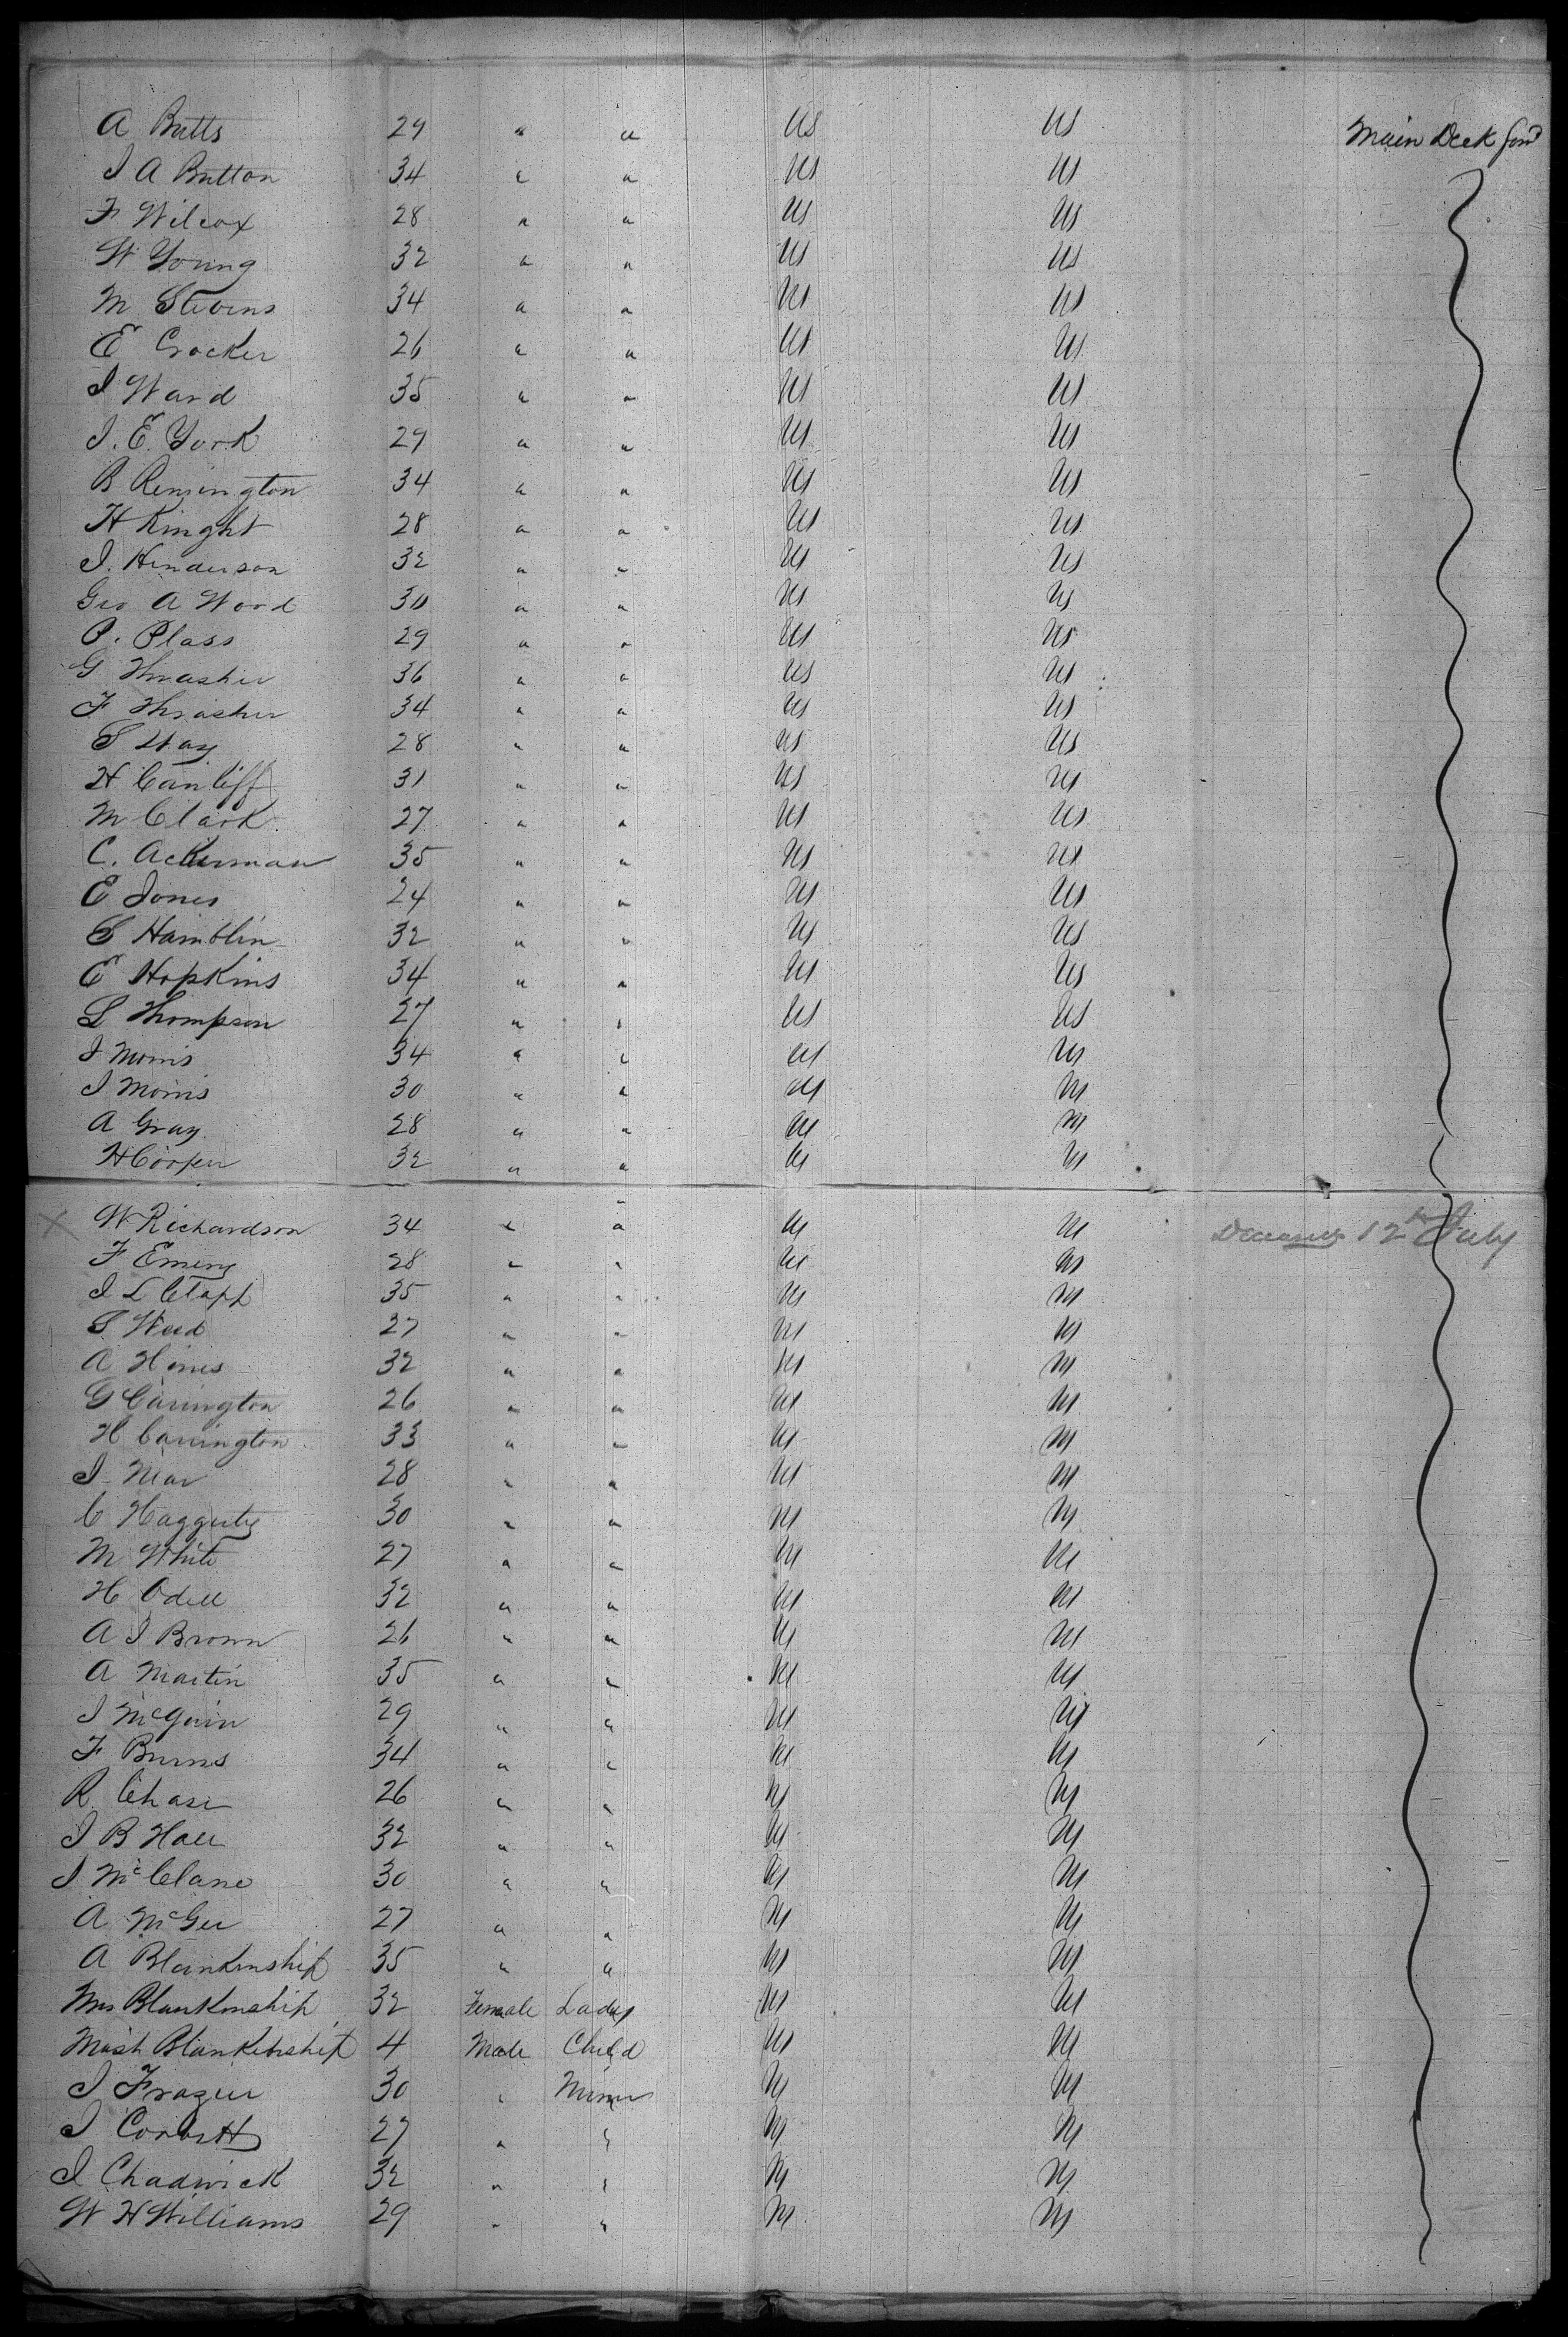 A Butts 29 " " US US Main Deck for'd
J A Button 34 " " US US
F Wilcox 28 " " US US
W Young 32 " " US US
M Stevens 34 " " US US
E Crocker 26 " " US US
J Ward 35 " " US US
J. E. York 29 " " US US
B Remington 34 " " US US
H Kinght 28 " " US US
J. Henderson 32 " " US US
Geo A Wood 30 " " US US
P. Plass 29 " " US US
G Thrasher 36 " " US US
F Thrasher 34 " " US US
S Way 28 " " US US
H Canliff 31 " " US US
M Clark 27 " " US US
C. Ackerman 35 " " US US
E Jones 24 " " US US
S Hamblin 32 " " US US
E Hopkins 34 " " US US
L Thompson 27 " " US US
J Morris 34 " " US US
J Morris 30 " " US US
A Gray 28 " " US US
H Cooper 32 " " US US
X W Richardson 34 " " US US Deceased 12th July
F Emery 28 " " US US
J L Clapp 35 " " US US
S Weed 27 " " US US
A Hines 32 " " US US
G Carrington 26 " " US US
H Carrington 33 " " US US
J 28 " " US US
C Haggerty 30 " " US US
M White 27 " " US US
H Odell 32 " " US US
A J Brown 26 " " US US
A Martin 35 " " US US
J McGuin 29 " " US US
F Burns 34 " " US US
R. Chase 26 " " US US
J B Hall 32 " " US US
J McClane 30 " " US US
A McGee 27 " " US US
A Blankenship 35 " " US US
Mrs Blankenship 32 Female Lady US US
Mast Blankenship 4 Male Child US US
J Frazier 30 " Miner US US
J Corbett 27 " " US US
J Chadwick 32 " " US US
W H Williams 29 " " US US